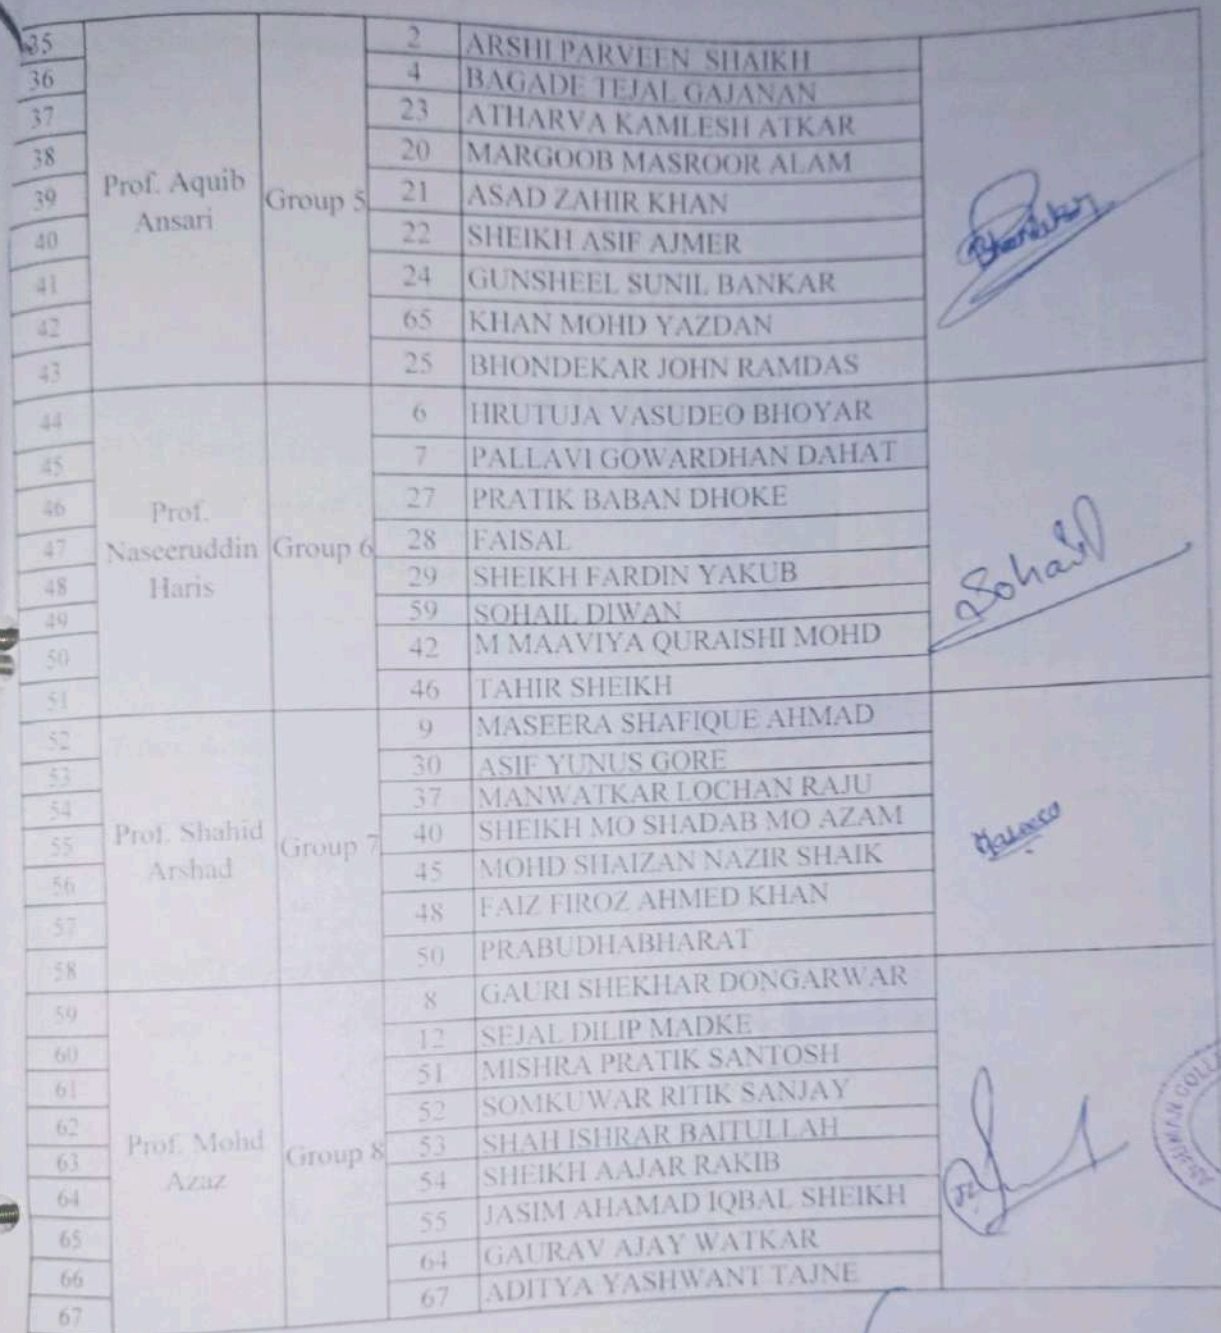 35 Prof. Aquib Ansari Group 5 2 ARSHI PARVEEN SHAIKH Bhondekar
36 4 BAGADE TEJAL GAJANAN
37 23 ATHARVA KAMLESH ATKAR
38 20 MARGOOB MASROOR ALAM
39 21 ASAD ZAHIR KHAN
40 22 SHEIKH ASIF AJMER
41 24 GUNSHEEL SUNIL BANKAR
42 65 KHAN MOHD YAZDAN
43 25 BHONDEKAR JOHN RAMDAS
44 Prof. Naseeruddin Haris Group 6 6 HRUTUJA VASUDEO BHOYAR Sohail
45 7 PALLAVI GOWARDHAN DAHAT
46 27 PRATIK BABAN DHOKE
47 28 FAISAL
48 29 SHEIKH FARDIN YAKUB
49 59 SOHAIL DIWAN
50 42 M MAAVIYA QURAISHI MOHD
51 46 TAHIR SHEIKH
52 Prof. Shahid Arshad Group 7 9 MASEERA SHAFIQUE AHMAD
53 30 ASIF YUNUS GORE
54 37 MANWATKAR LOCHAN RAJU
55 40 SHEIKH MO SHADAB MO AZAM
56 45 MOHD SHAIZAN NAZIR SHAIK
57 48 FAIZ FIROZ AHMED KHAN
58 50 PRABUDHABHARAT
59 Prof. Mohd Azaz Group 8 8 GAURI SHEKHAR DONGARWAR
60 12 SEJAL DILIP MADKE
61 51 MISHRA PRATIK SANTOSH
62 52 SOMKUWAR RITIK SANJAY
63 53 SHAH ISHRAR BAITULLAH
64 54 SHEIKH AAJAR RAKIB
65 55 JASIM AHAMAD IQBAL SHEIKH
66 64 GAURAV AJAY WATKAR
67 67 ADITYA YASHWANT TAJNE